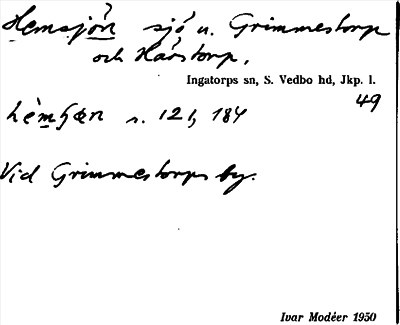 Hemsjön sjö u. Grimmestorp
och Harstorp,
Ingatorps sn, S. Vedbo hd, Jkp. l.
49
s. 121, 184
Vid Grimmestorps by.
Ivar Modéer 1950